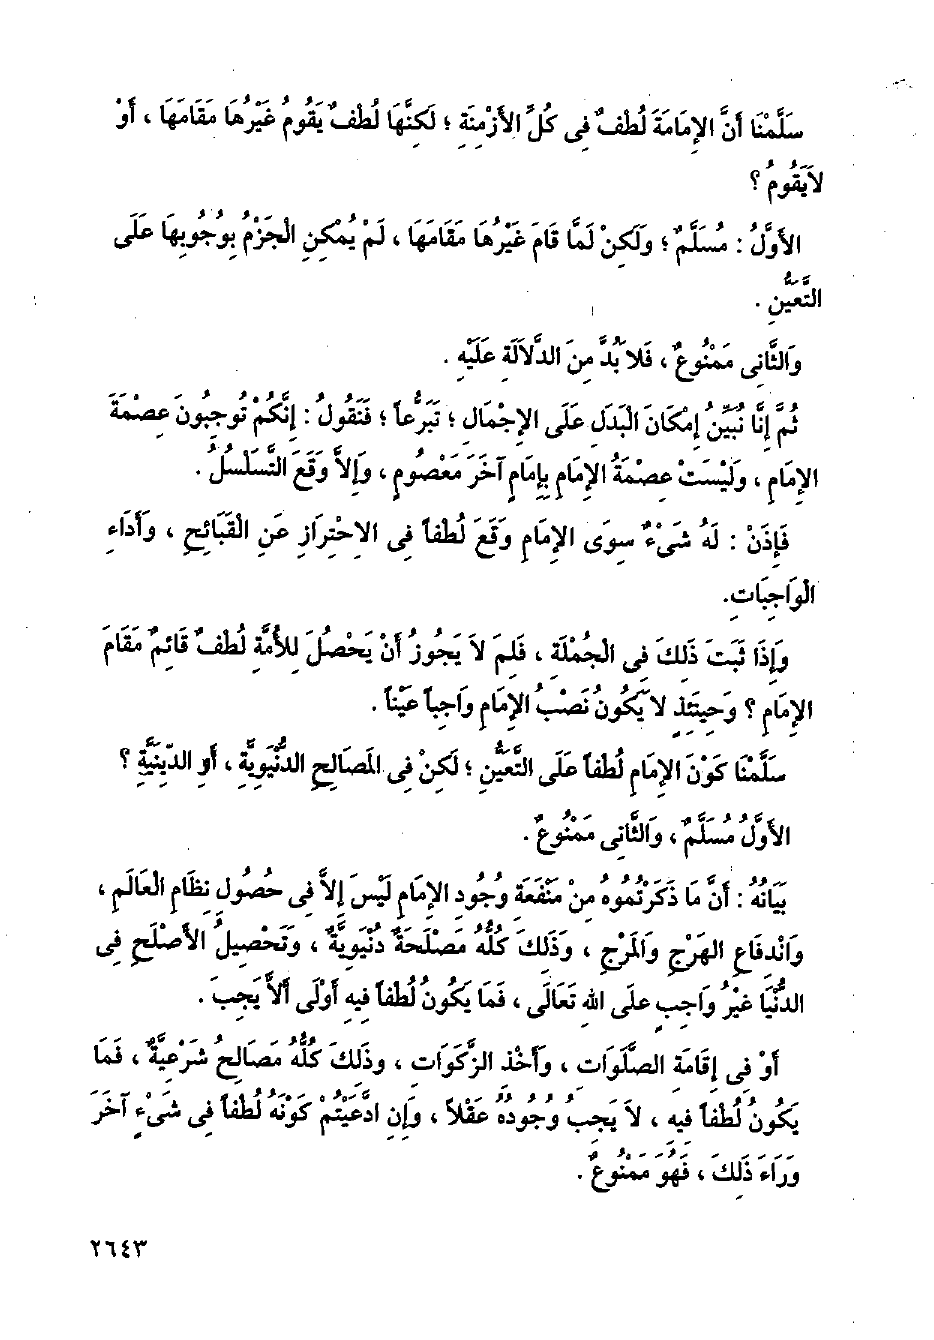 سَلَّمْنَا أَنَّ الإِمَامَةَ لُطْفٌ فِى كُلِّ الأَزْمِنَةِ ؛ لَكِنَّهَا لُطْفٌ يَقُومُ غَيْرُهَا مَقَامَهَا ، أَوْ
لاَيَقُومُ ؟
الأَوَّلُ : مُسَلَّمٌ ؛ وَلَكِنْ لَمَّا قَامَ غَيْرُهَا مَقَامَهَا ، لَمْ يُمْكِنِ الْجَزْمُ بِوُجُوبِهَا عَلَى
التَّعَيُّنِ .
وَالثَّانِى مَمْنُوعٌ ، فَلاَ بُدَّ مِنَ الدَّلاَلَةِ عَلَيْهِ .
ثُمَّ إِنَّا نُبَيِّنُ إِمْكَانَ الْبَدَلِ عَلَى الإِجْمَالِ ؛ تَبَرُّعاً ؛ فَنَقُولُ : إِنَّكُمْ تُوجِبُونَ عِصْمَةَ
الإِمَامِ ، وَلَيْسَتْ عِصْمَةُ الإِمَامِ بِإِمَامٍ آخَرَ مَعْصُومٍ ، وَإِلاَّ وَقَعَ التَّسَلْسُلُ .
فَإِذَنْ : لَهُ شَىْءٌ سِوَى الإِمَامِ وَقَعَ لُطْفاً فِى الاحْتِرَازِ عَنِ الْقَبَائِحِ ، وَأَدَاءِ
الْوَاجِبَاتِ.
وَإِذَا ثَبَتَ ذَلِكَ فِى الْجُمْلَةِ ، فَلِمَ لاَ يَجُوزُ أَنْ يَحْصُلَ لِلأُمَّةِ لُطْفٌ قَائِمٌ مَقَامَ
الإِمَامِ ؟ وَحِينَئِذٍ لاَ يَكُونُ نَصْبُ الإِمَامِ وَاجِباً عَيْناً .
سَلَّمْنَا كَوْنَ الإِمَامِ لُطْفاً عَلَى التَّعَيُّنِ ؛ لَكِنْ فِى المَصَالِحِ الدُّنْيَوِيَّةِ ، أَوِ الدِّينِيَّةِ ؟
الأَوَّلُ مُسَلَّمٌ ، وَالثَّانِى مَمْنُوعٌ .
بَيَانُهُ : أَنَّ مَا ذَكَرْتُمُوهُ مِنْ مَنْفَعَةِ وُجُودِ الإِمَامِ لَيْسَ إِلاَّ فِى حُصُولِ نِظَامِ الْعَالَمِ ،
وَانْدِفَاعِ الهَرْجِ وَالمَرْجِ ، وَذَلِكَ كُلُّهُ مَصْلَحَةٌ دُنْيَوِيَّةٌ ، وَتَحْصِيلُ الأَصْلَحِ فِى
الدُّنْيَا غَيْرُ وَاجِبٍ عَلَى اللهِ تَعَالَى ، فَمَا يَكُونُ لُطْفاً فِيهِ أَوْلَى أَلاَّ يَجِبَ .
أَوْ فِى إِقَامَةِ الصَّلَوَاتِ ، وَأَخْذِ الزَّكَوَاتِ ، وَذَلِكَ كُلُّهُ مَصَالِحُ شَرْعِيَّةٌ ، فَمَا
يَكُونُ لُطْفاً فِيهِ ، لاَ يَجِبُ وُجُودُهُ عَقْلاً ، وَإِنِ ادَّعَيْتُمْ كَوْنَهُ لُطْفاً فِى شَىْءٍ آخَرَ
وَرَاءَ ذَلِكَ ، فَهُوَ مَمْنُوعٌ .
٢٦٤٣